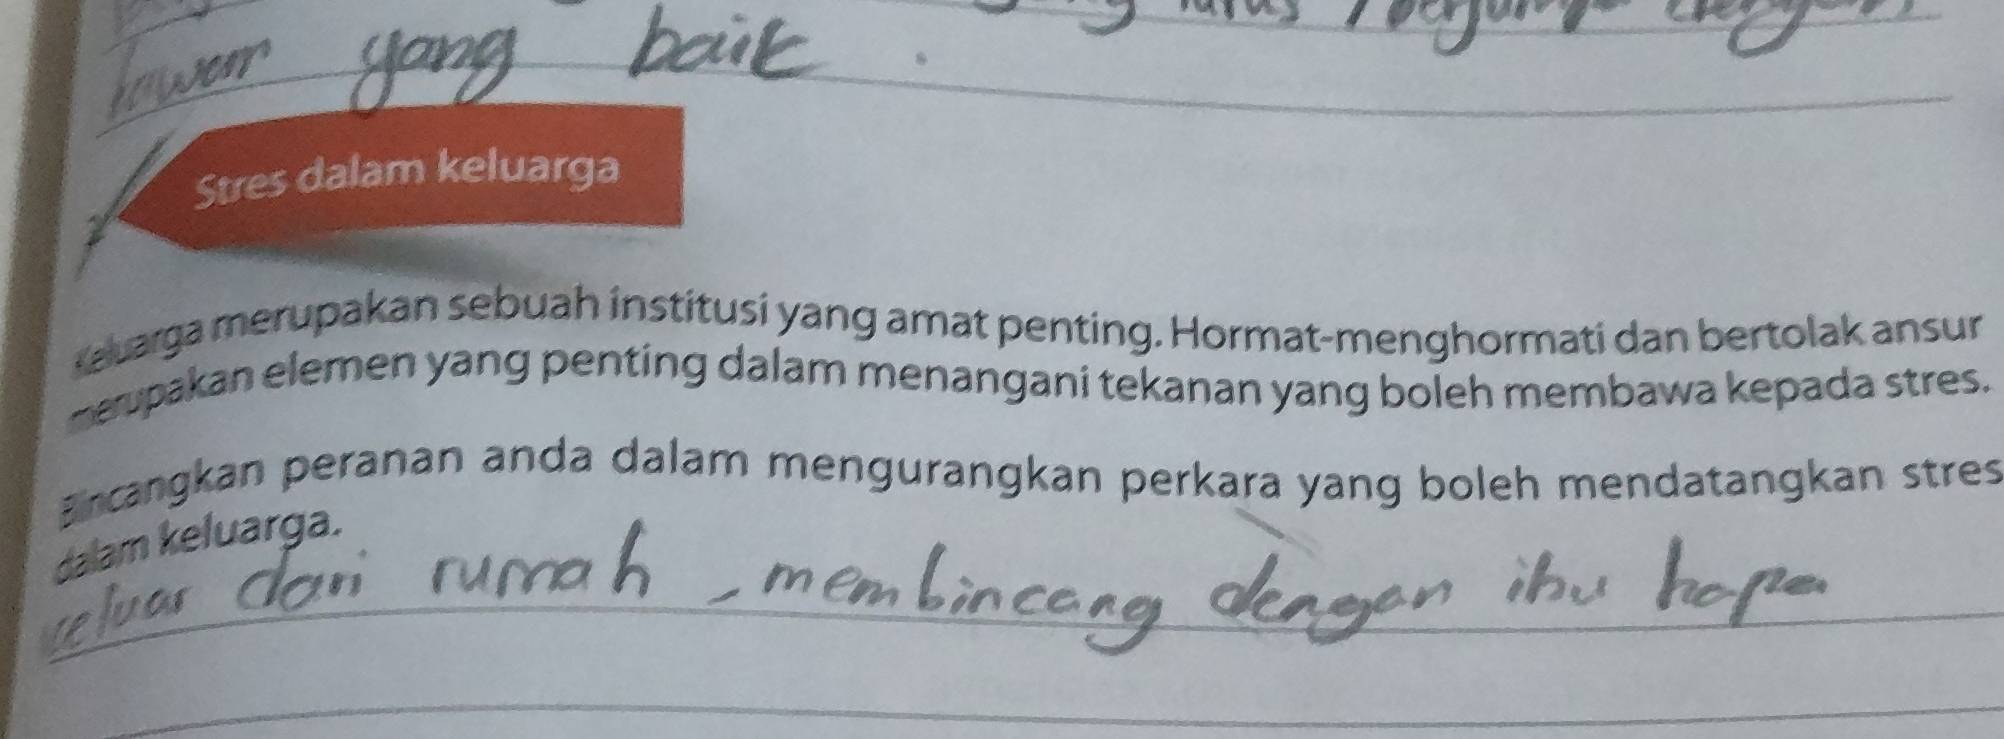 yang baik .
Stres dalam keluarga
Keluarga merupakan sebuah institusi yang amat penting. Hormat-menghormati dan bertolak ansur
merupakan elemen yang penting dalam menangani tekanan yang boleh membawa kepada stres.
Bincangkan peranan anda dalam mengurangkan perkara yang boleh mendatangkan stres
dalam keluarga.
keluar dari rumah , membincang dengan ibu hapa